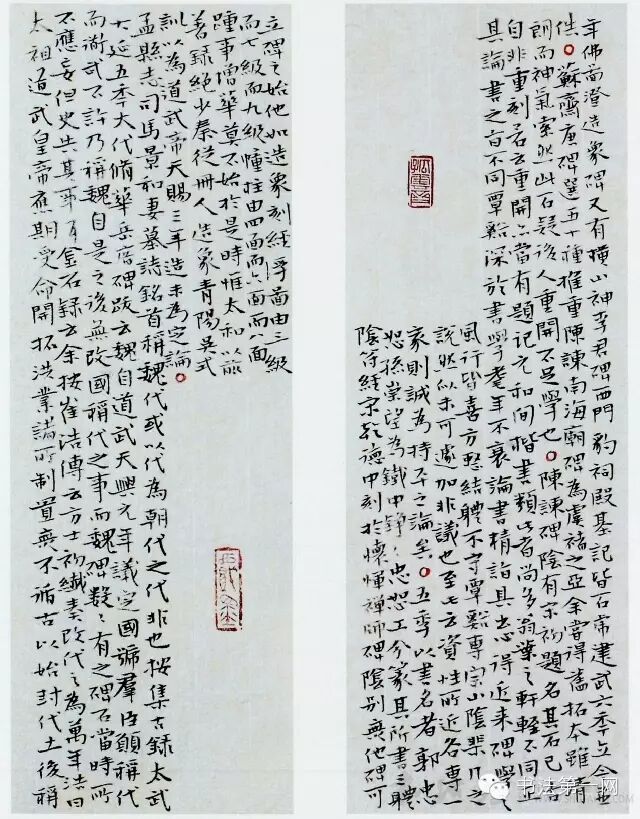 年佛啚澄造象碑又有橫山神李君碑西門豹祠殿基記皆石帝建武六季立今並
佚蘇齋唐碑選五十種推重陳諫南海廟碑為虞褚之亞余嘗得舊拓本雖精
朗而神氣索然此石疑後人重開不足學也陳諫碑陰有宋初題名其石已古
自非重刻若云重開亦當有題記元和間楷書類此者尚多翁葉之軒輊不同正
其論書之旨不同覃谿深於書學耄年不衰論書精詣具出心得近來碑學之
風行皆喜方整結體不守覃谿專宗山陰棐几之
說然似未可遽加非議也至云資性所近各專一
家則誠為持平之論矣五季以書名者郭忠
恕孫崇望為鐵中錚〻忠恕工今篆其所書三體
陰符經宋乾德中刻於懷惲禪師碑陰別無他碑可
立碑之始他如造象刻經浮啚由三級
而七級而九級幢柱由四面而六面而八面
踵事增華莫不始於是時惟太和以前
著錄絕少秦從卌人造象青陽吳式
訓以為道武帝天賜三年造未為定論
孟縣志司馬景和妻墓誌銘首稱魏代或以代為朝代之代非也按集古錄太武
七延五季大脩華岳廟碑跋云魏自道武天興元年議定國號羣臣願稱代
而道武不許乃稱魏自是之後無改國稱代之事而魏碑數〻有之碑石當時所
不應妄但史失其事耳金石錄云余按崔浩傳云方士祁纖奏改代之為萬年浩曰
太祖道武皇帝應期受命開拓洪業諸所制置無不循古以始封代土後稱
书法第一网